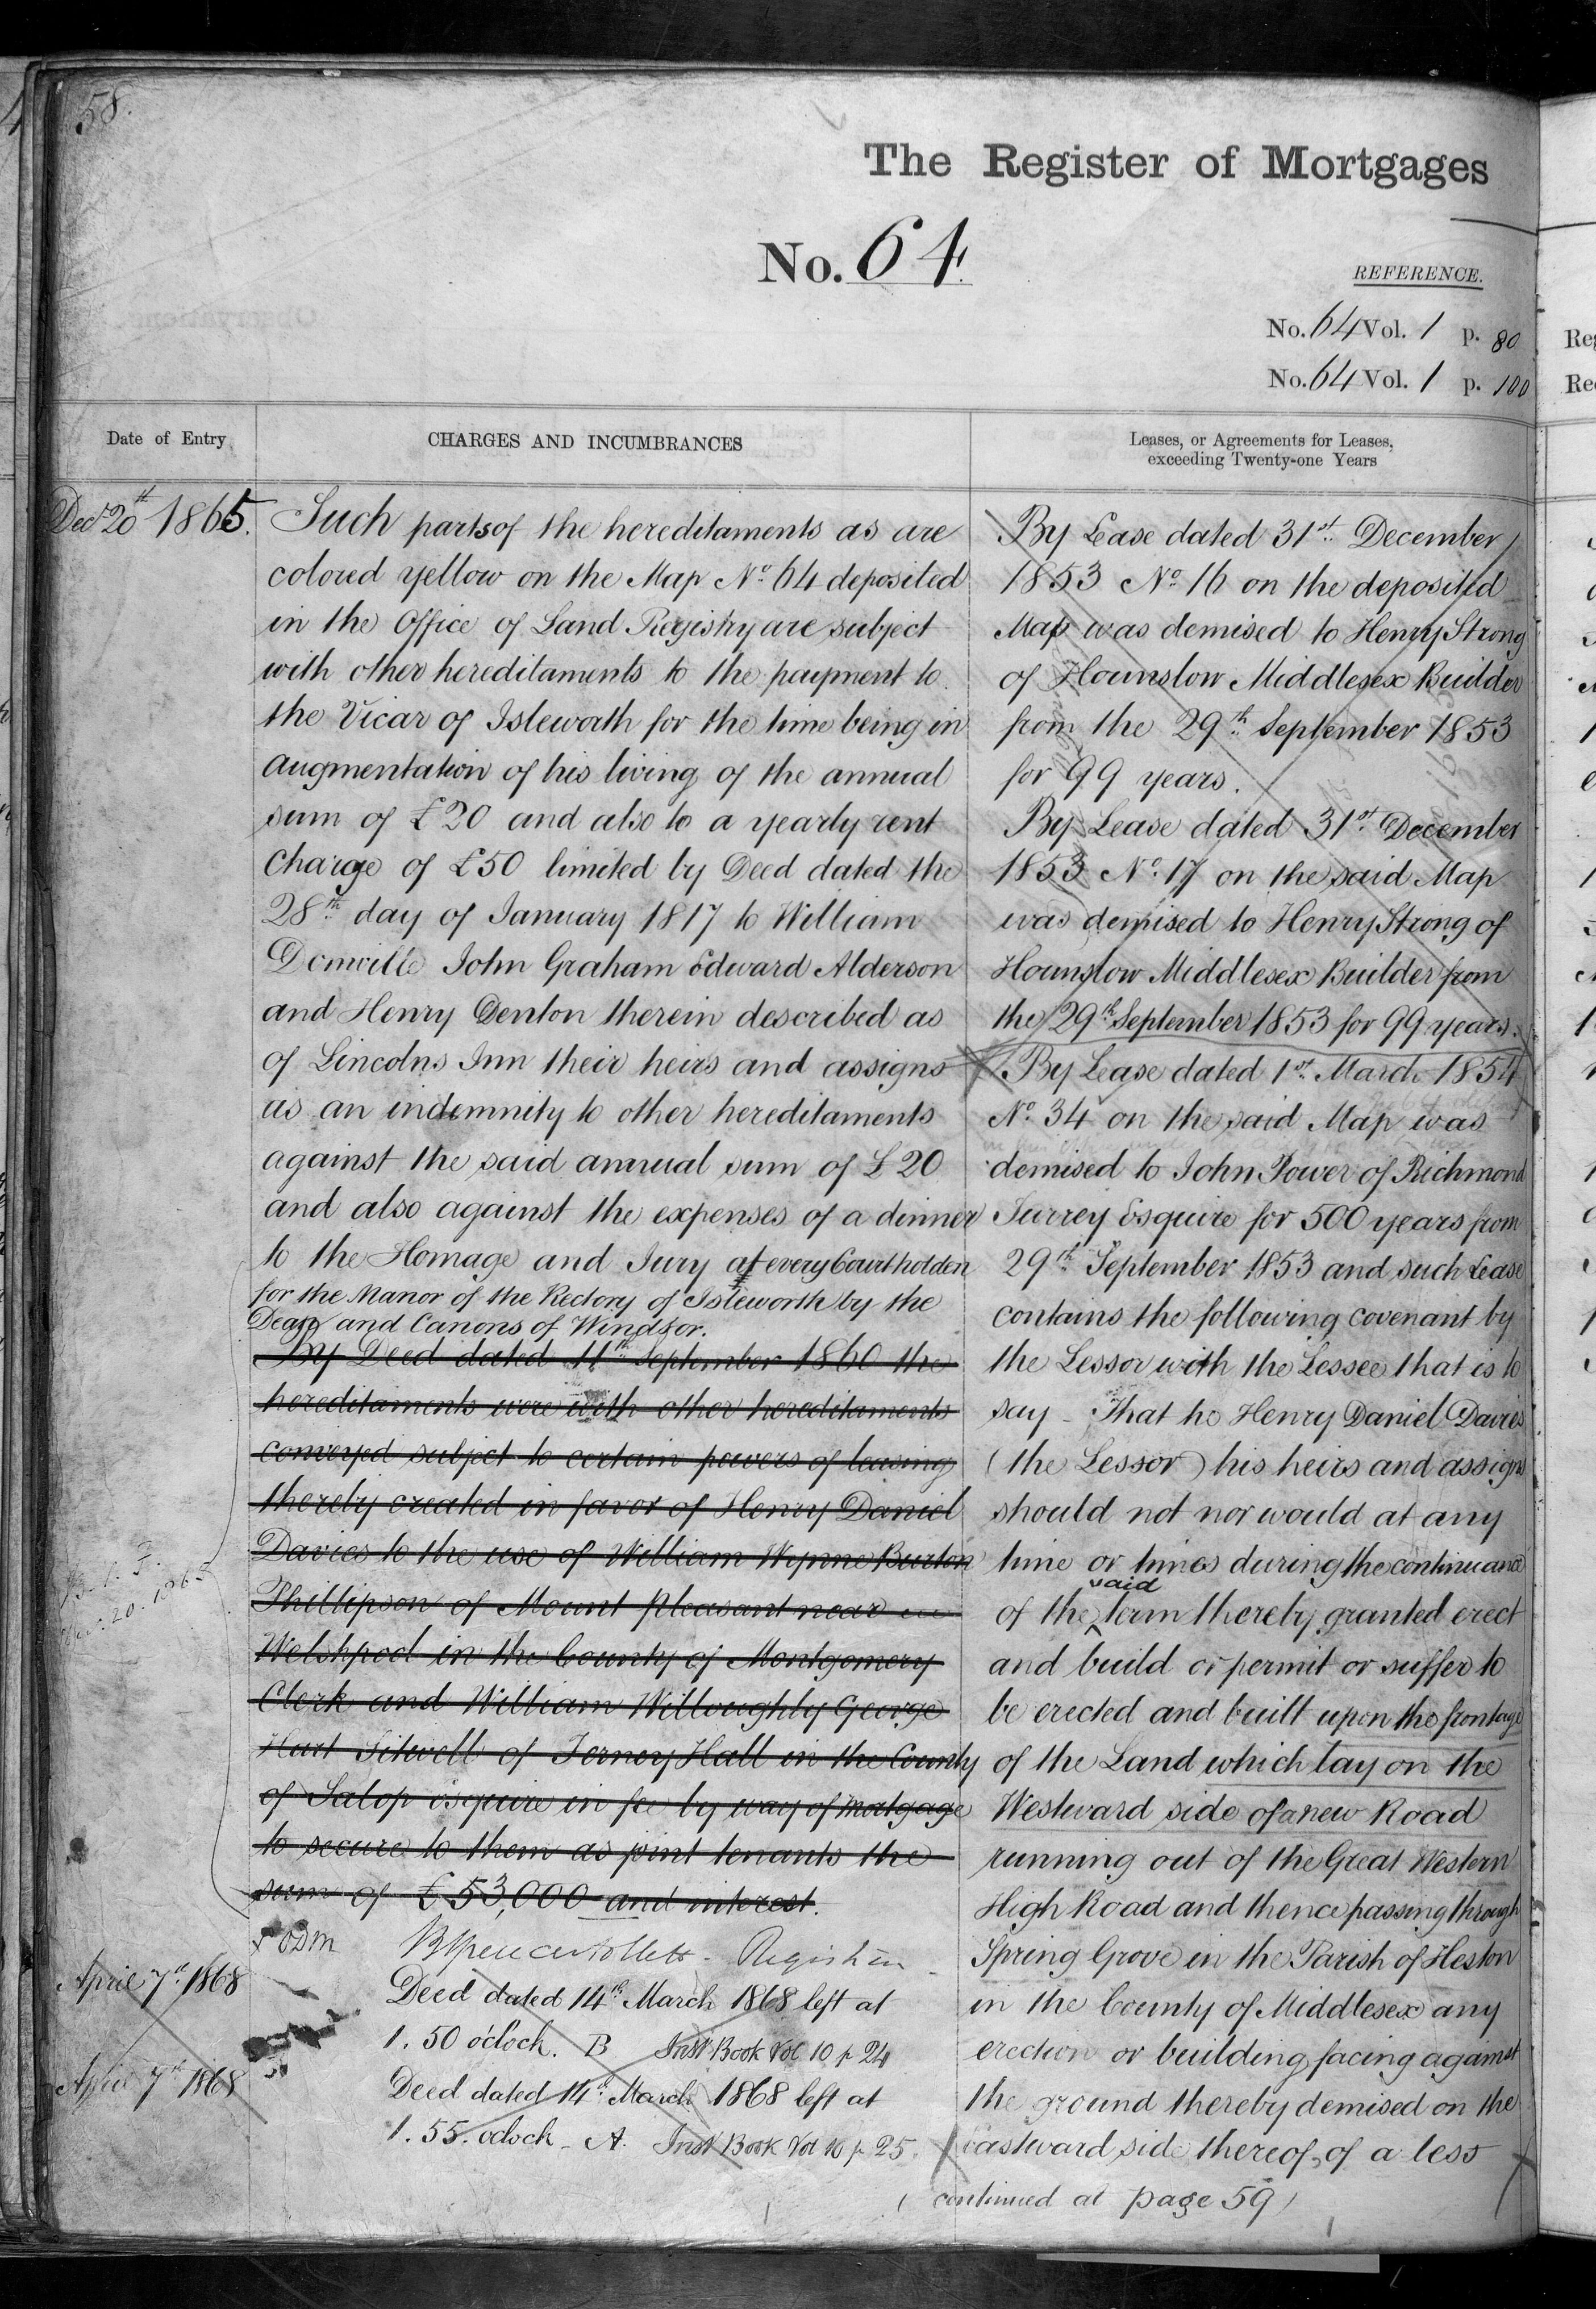 58.
The Register of Mortgages
No. 64.
REFERENCE.
No. 64 Vol. 1 p. 80
No. 64 Vol. 1 p. 100
Date of Entry
CHARGES AND INCUMBRANCES
Leases, or Agreements for Leases,
exceeding Twenty-one Years
Decr 20th 1865.
Such parts of the hereditaments as are
colored yellow on the Map No. 64 deposited
in the Office of Land Registry are subject
with other hereditaments to the payment to
the Vicar of Isleworth for the time being in
augmentation of his living of the annual
sum of £20 and also to a yearly rent
charge of £50 limited by Deed dated the
28th day of January 1817 to William
Domville John Graham Edward Alderson
and Henry Denton therein described as
of Lincolns Inn their heirs and assigns
as an indemnity to other hereditaments
against the said annual sum of £20
and also against the expenses of a dinner
to the Homage and Jury at every Court holden
for the Manor of the Rectory of Isleworth by the
Dean and Canons of Windsor.
By Deed dated 11th September 1860 the
hereditaments were with other hereditaments
conveyed subject to certain powers of leasing
thereby created in favor of Henry Daniel
Davies to the use of William Wynne Burton
Phillipson of Mount Pleasant near
Welshpool in the County of Montgomery
Clerk and William Willoughby George
Hurt Sitwell of Ferney Hall in the County
of Salop Esquire in fee by way of Mortgage
to secure to them as joint tenants the
sum of £53,000 and interest.
Registrar
April 7th 1868
Deed dated 14th March 1868 left at
1. 50 o'clock. B Instt Book Vol 10 p 24
April 7th 1868
Deed dated 14th March 1868 left at
1. 55. oclock - A. Instt Book Vol 10 p 25.
By Lease dated 31st December
1853 No. 16 on the deposited
Map was demised to Henry Strong
of Hounslow Middlesex Builder
from the 29th September 1853
for 99 years.
By Lease dated 31st December
1853 No. 17 on the said Map
was demised to Henry Strong of
Hounslow Middlesex Builder from
the 29th September 1853 for 99 years.
By Lease dated 1st March 1854
No. 34 on the said Map was
demised to John Power of Richmond
Surrey Esquire for 500 years from
29th September 1853 and such Lease
contains the following covenant by
the Lessor with the Lessee that is to
say - That he Henry Daniel Davies
(the Lessor) his heirs and assigns
should not nor would at any
time or times during the continuance
of the said term thereby granted erect
and build or permit or suffer to
be erected and built upon the frontage
of the Land which lay on the
Westward side of a new Road
running out of the Great Western
High Road and thence passing through
Spring Grove in the Parish of Heston
in the County of Middlesex any
erection or building facing against
the ground thereby demised on the
Eastward side thereof, of a less
(continued at page 59)